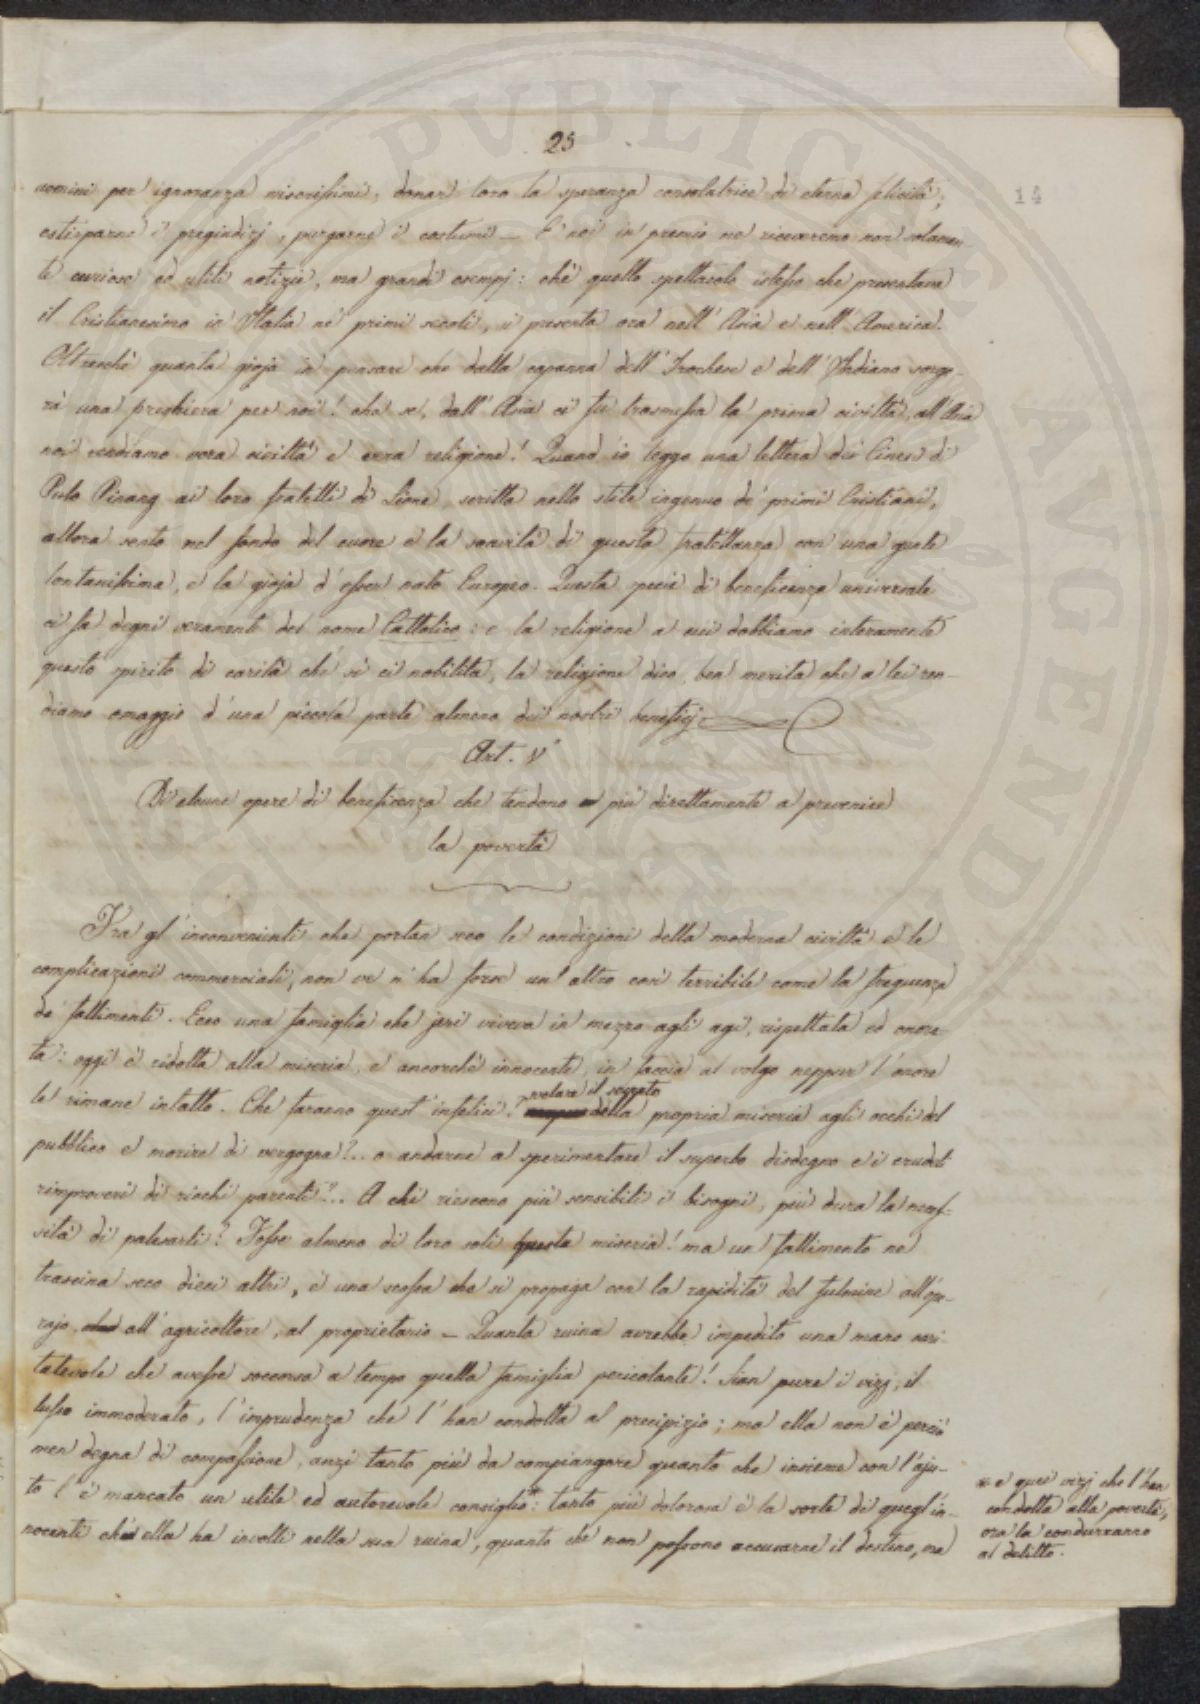 25
14
uomini per ignoranza miserissimi, donar loro la speranza consolatrice di eterna felicità;
estirparne i pregiudizj, purgarne i costumi — E noi in premio ne riceveremo non solamen-
te curiose ed utili notizie, ma grandi esempj: chè quello spettacolo istesso che presentava
il Cristianesimo in Italia ne' primi secoli, si presenta ora nell'Asia e nell'America.
Oltrechè quanta gioja in pensare che dalla capanna dell'Irochese e dell'Indiano sorge-
rà una preghiera per noi! che se, dall'Asia ci fu trasmessa la prima civiltà, all'Asia
noi rendiamo vera civiltà e vera religione! Quand io leggo una lettera dei Cinesi di
Pulo Pinang ai loro fratelli di Lione, scritta nello stile ingenuo de' primi Cristiani,
allora sento nel fondo del cuore e la soavità di questa fratellanza con una gente
lontanissima, e la gioja d'esser nato Europeo. Questa specie di beneficenza universale
ci fa degni veramente del nome Cattolico: e la religione a cui dobbiamo interamente
questo spirito di carità che sì ci nobilita, la religione dico, ben merita che a lei ren-
diamo omaggio d'una piccola parte almeno dei nostri beneficj
Art. V°
Di alcune opere di beneficenza che tendono più direttamente a prevenire
la povertà
Fra gl'inconvenienti che portan seco le condizioni della moderna civiltà e le
complicazioni commerciali, non ve n'ha forse un'altro così terribile come la frequenza
de' fallimenti. Ecco una famiglia che jeri viveva in mezzo agli agi, rispettata ed onora-
ta: oggi è ridotta alla miseria, e ancorchè innocente, in faccia al volgo neppur l'onore
le rimane intatto. Che faranno quest'infelici? velare il segreto della propria miseria agli occhi del
pubblico e morire di vergogna?.. o andarne a sperimentare il superbo disdegno e i crudeli
rimproveri di ricchi parenti?.. A chi riescono più sensibili i bisogni, più dura la neces-
sità di palesarli? Fosse almeno di loro soli questa miseria! ma un fallimento ne
trascina seco dieci altri, è una scossa che si propaga con la rapidità del fulmine all'ope-
rajo, all'agricoltore, al proprietario — Quanta ruina avrebbe impedito una mano cari-
tatevole che avesse soccorso a tempo quella famiglia pericolante! Sian pure i vizj, il
lusso immoderato, l'imprudenza che l'han condotta al precipizio; ma ella non è perciò
men degna di compassione, anzi tanto più da compiangere quanto che insieme con l'aju-
to l'è mancato un utile ed autorevole consiglio*: tanto più dolorosa è la sorte di quegl'in-
nocenti ch'ella ha involti nella sua ruina, quanto che non possono accusarne il destino, ma
* e quei vizj che l'han
condotta alla povertà,
ora la condurranno
al delitto.